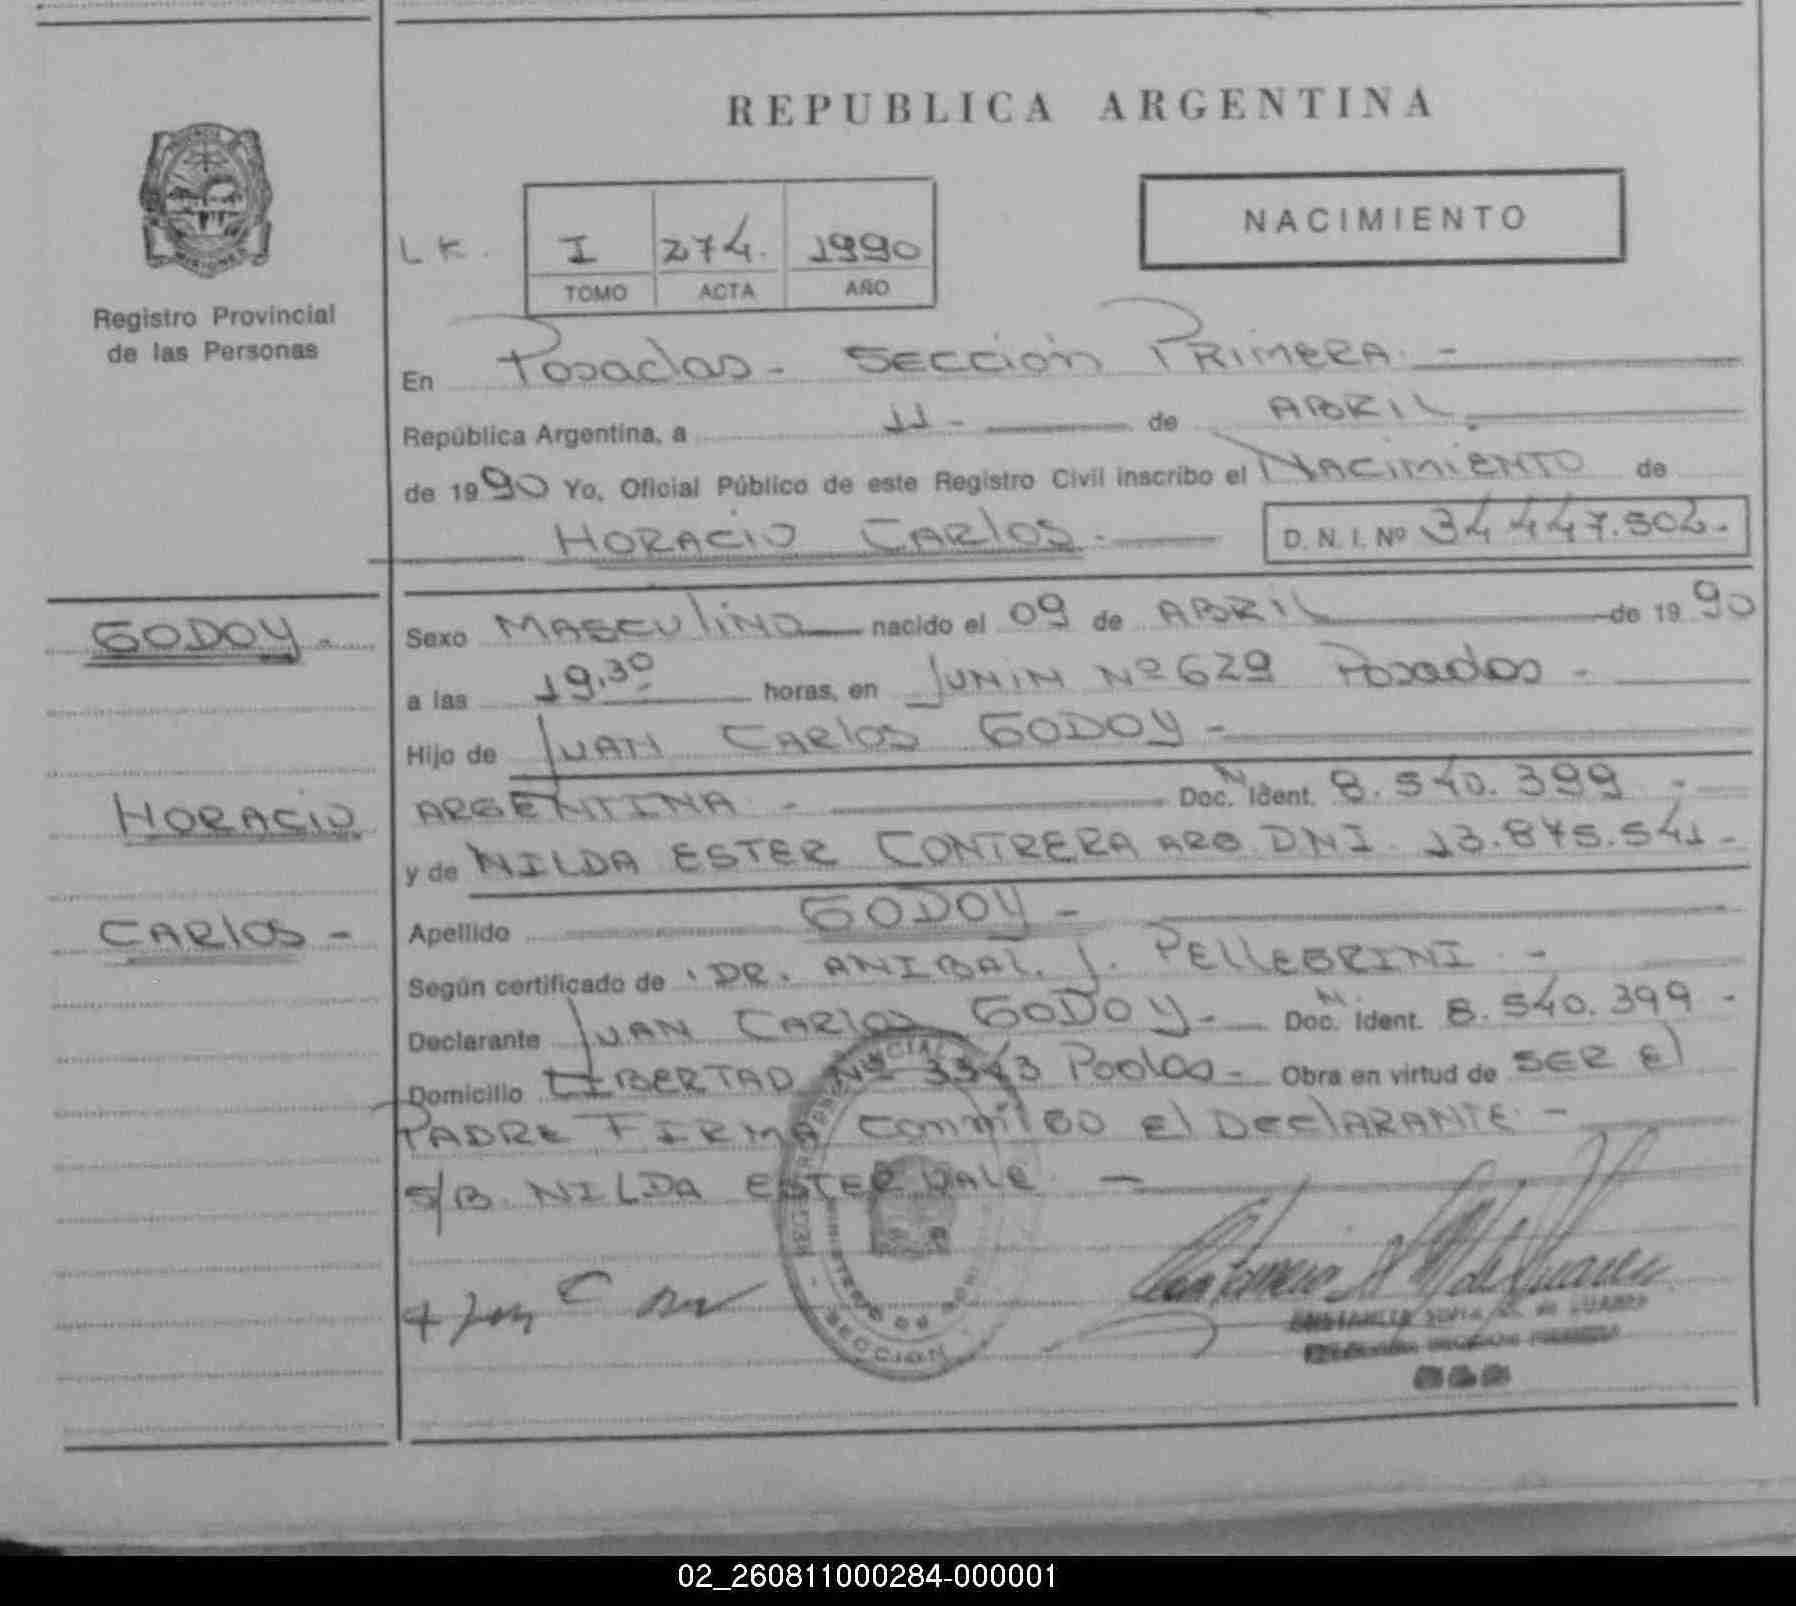 REPUBLICA ARGENTINA
NACIMIENTO
L K.
I 274. 1990
TOMO ACTA AÑO
Registro Provincial
de las Personas
En Posadas - Sección Primera. -
República Argentina, a 11 - de ABRIL
de 1990 Yo, Oficial Público de este Registro Civil inscribo el NACIMIENTO de
HORACIO CARlos. - D. N. I. Nº 34447.502.
GODOY -
Sexo MASCULINO nacido el 09 de ABRIL de 1990
a las 19.30 horas, en JUNIN Nº 629 Posadas -
Hijo de JUAN CARlos GODOY -
HORACIO
ARGENTINA - Doc. N Ident. 8.540.399 -
y de NILDA ESTER CONTRERA ARG. DNI. 13.875.541 -
CARlos -
Apellido GODOY -
Según certificado de DR. ANIBAL. J. PELLEGRINI. -
Declarante JUAN CARlos GODOY - Doc. N. Ident. 8.540.399 -
Domicilio LIBERTAD Nº 3343 Posdas - Obra en virtud de SER El
PADRE FIRMA conmigo El DEClARANTE. -
S/B. NILDA ESTER VALE. -
SECCION
02_260811000284-000001